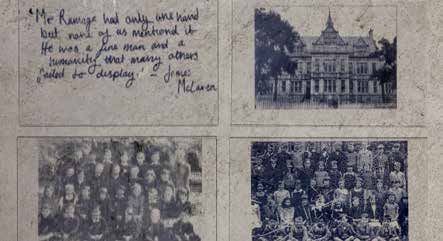 'Mr Ramage had only one hand
but none of us mentioned it
He was a fine man and a
humanity that many others
failed to display.' – James
McLaren